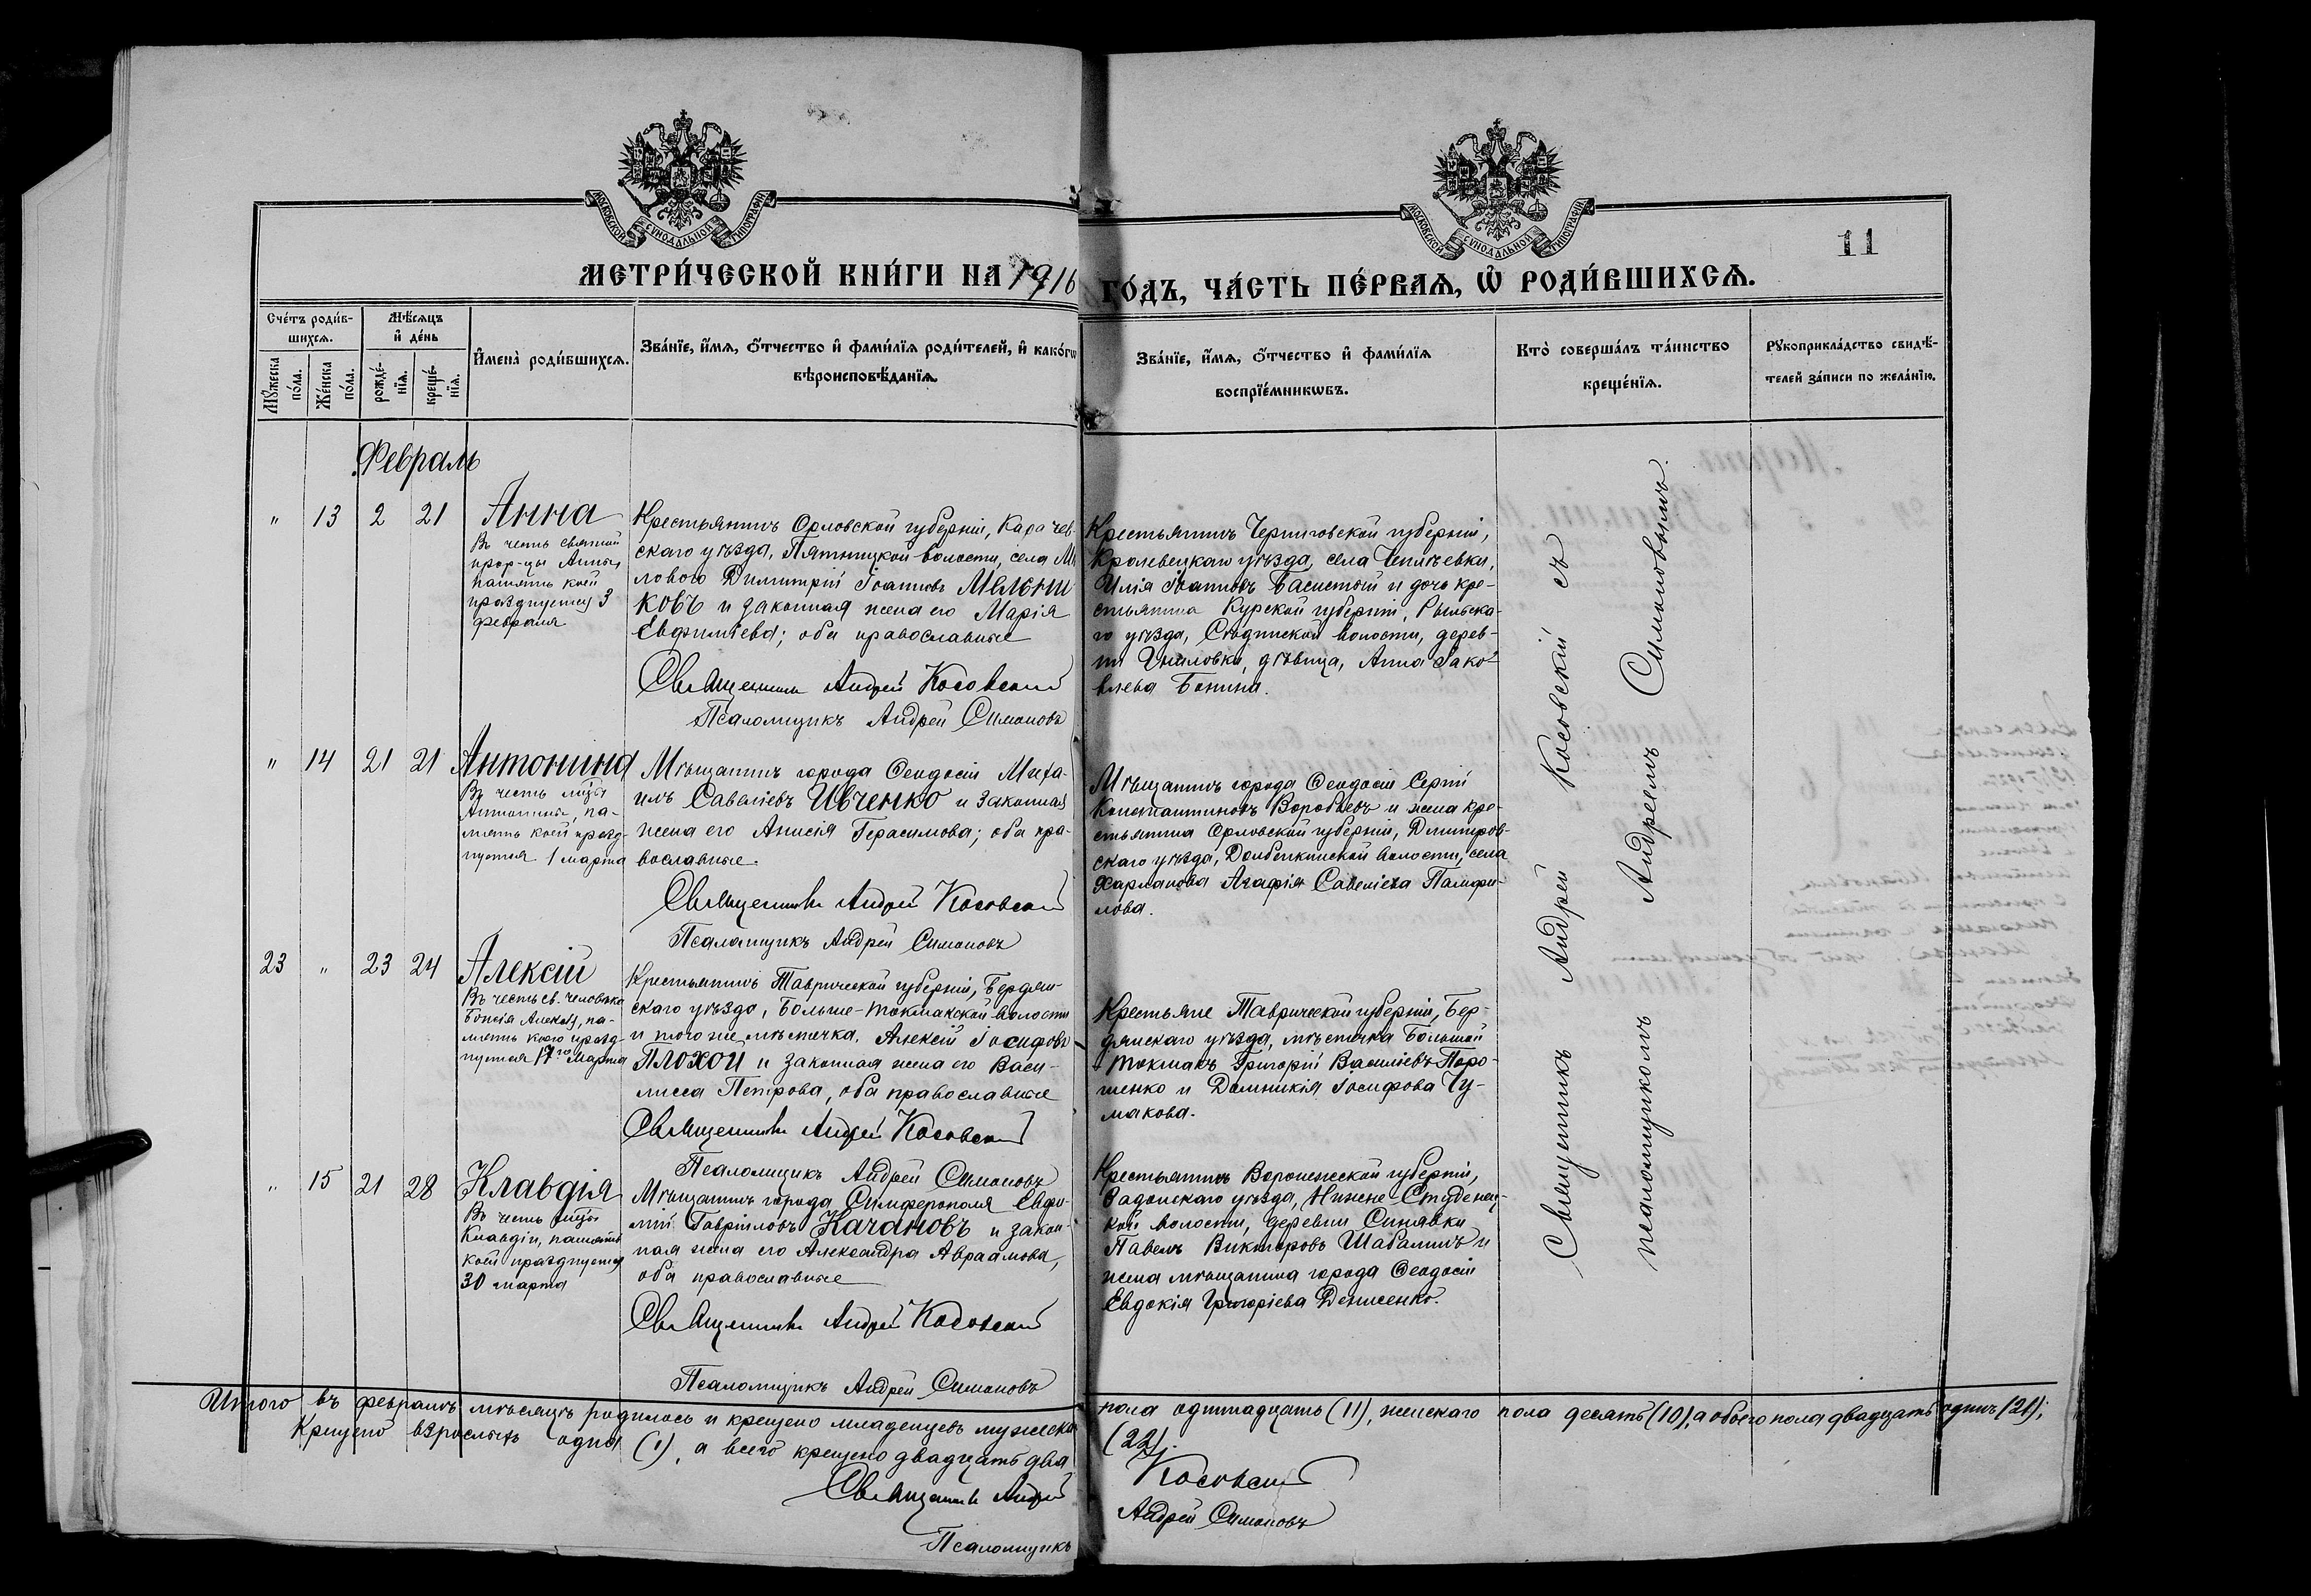 МОСКОВСКОЙ СѴНОДАЛЬНОЙ ТИПОГРАФІИ
МОСКОВСКОЙ СѴНОДАЛЬНОЙ ТИПОГРАФІИ
11
МЕТРИ́ЧЕСКОЙ КНИ́ГИ НА 1916 ГО́ДЪ, ЧА́СТЬ ПЕ́РВАѦ, Ѡ҆ РОДИ́ВШИХСѦ.
Сче́тъ роди́в-
шихсѧ.
Мѣ́сѧцъ
и҆ де́нь
Мꙋ́жеска
по́ла.
Же́нска
по́ла.
рожде́-
нїѧ.
креще́-
нїѧ.
И҆мена̀ роди́вшихсѧ.
Зва́нїе, и҆́мѧ, ѻ҆́тчество и҆ фами́лїѧ роди́телей, и҆ како́гѡ
вѣроисповѣ́данїѧ.
Зва́нїе, и҆́мѧ, ѻ҆́тчество и҆ фами́лїѧ
воспрїе́мникѡвъ.
Кто̀ соверша́лъ та́инство
креще́нїѧ.
Рꙋкоприкла́дство свидѣ́-
телей за́писи по жела́нїю.
Февраль
" 13 2 21
Анна
Въ честь святой
прор-цы Анны
память коей
празднуется 3
февраля
Крестьянинъ Орловской губерніи, Карачев-
скаго уѣзда, Пятницкой волости, села Ми
лового Димитрій Іоанновъ Мелени
ковъ и законная жена его Марія
Евфиміева; оба православные
Священникъ Андрей Косовскій
Псаломщикъ Андрей Симоновъ
Крестьянинъ Черниговской губерніи,
Кролевецкаго уѣзда, села Чеплѣевки,
Илія Іоанновъ Басистый и дочь кре-
стьянина Курской губерніи, Рыльска-
го уѣзда, волости, дерев-
ни Гниловки, дѣвица, Анна Іако-
влева Бонина.
" 14 21 21
Антонина
Въ честь мцы
Антонины, па-
мять коей празд-
нуется 1 марта
Мѣщанинъ города Ѳеодосіи Миха-
илъ Савеліевъ Ивченко и законная
жена его Анисія Герасимова; оба пра-
вославные.
Священникъ Андрей Косовскій
Псаломщикъ Андрей Симоновъ
Мѣщанинъ города Ѳеодосіи Сергій
Константиновъ Воробьевъ и жена кре-
стьянина Орловской губерніи, Дмитров-
скаго уѣзда, Долбенкинской волости, села
Харланова Агафія Савеліева Памфи-
лова.
23 " 23 24
Алексій
Въ честь св. человѣка
Божія Алексія, па-
мять коего празд-
нуется 17го марта
Крестьянинъ Таврической губерніи, Бердян-
скаго уѣзда, Больше-Токмакской волости
и того же мѣстечка, Алексій Іосифовъ
Плохой и законная жена его Васи-
лисса Петрова, оба православные
Священникъ Андрей Косовскій
Псаломщикъ Андрей Симоновъ
Крестьяне Таврической губерніи, Бер-
дянскаго уѣзда, мѣстечка Большой
-Токмакъ Григорій Василіевъ Поро-
шенко и Домникія Іосифова Чу-
макова.
" 15 21 28
Клавдія
Въ честь мцы
Клавдіи, память
коей празднуется
30 марта
Мѣщанинъ города Симферополя Евфи-
мій Гавріиловъ Качановъ и закон-
ная жена его Александра Авраамова,
оба православные
Священникъ Андрей Косовскій
Псаломщикъ Андрей Симоновъ
Крестьянинъ Воронежской губерніи,
Задонскаго уѣзда, Нижне-Студенец-
кой волости, деревни Синявки
Павелъ Викторовъ Шабалинъ и
жена мѣщанина города Ѳеодосіи
Евдокія Григоріева Денисенко.
Священникъ Андрей Косовскій съ
псаломщикомъ Андреемъ Симоновымъ.
Итого въ февралѣ мѣсяцѣ родилось и крещено младенцевъ мужеска пола одиннадцать (11), женскаго пола десять (10), а обоего пола двадцать одинъ (21);
Крещено взрослыхъ одна (1), а всего крещено двадцать два (22).
Священникъ Андрей Косовскій
Псаломщикъ Андрей Симоновъ